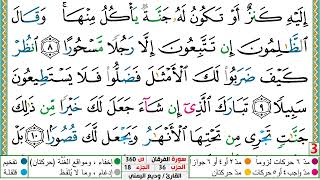 إِلَيْهِ كَنزٌ أَوْ تَكُونُ لَهُۥ جَنَّةٌ يَأْكُلُ مِنْهَا ۚ وَقَالَ
ٱلظَّٰلِمُونَ إِن تَتَّبِعُونَ إِلَّا رَجُلًا مَّسْحُورًا ٨ ٱنظُرْ
كَيْفَ ضَرَبُوا۟ لَكَ ٱلْأَمْثَٰلَ فَضَلُّوا۟ فَلَا يَسْتَطِيعُونَ
سَبِيلًا ٩ تَبَارَكَ ٱلَّذِىٓ إِن شَآءَ جَعَلَ لَكَ خَيْرًا مِّن ذَٰلِكَ
جَنَّٰتٍ تَجْرِى مِن تَحْتِهَا ٱلْأَنْهَٰرُ وَيَجْعَل لَّكَ قُصُورًا ١٠
3
مدّ ٦ حركات لزوماً مدّ ٢ أو ٤ أو ٦ جوازاً
مدّ واجب ٤ أو ٥ حركات مدّ حركتان
سورة الفرقان ص 360
الحزب 36 الجزء 18
القارئ / وديع اليمني
إخفاء، ومواقع الغنّة (حركتان)
إدغام، وما لا يُلفظ
تفخيم
قلقلة